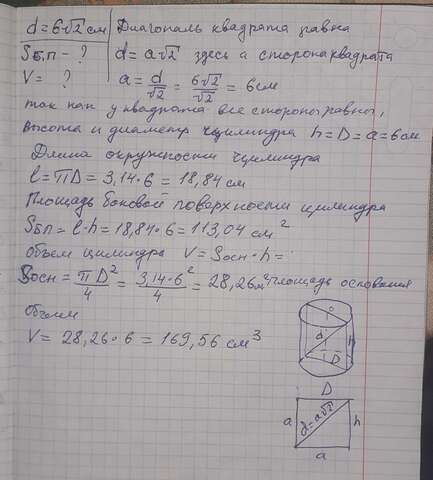 d = 6√2 см
Sб.п - ?
V = ?
Диагональ квадрата равна
d = a√2 здесь а сторона квадрата
a = d/√2 = 6√2/√2 = 6 см
так как у квадрата все стороны равны,
высота и диаметр цилиндра h = D = a = 6 см
Длина окружности цилиндра
l = πD = 3,14·6 = 18,84 см
Площадь боковой поверхности цилиндра
Sбп = l·h = 18,84·6 = 113,04 см²
Объем цилиндра V = Sосн·h =
Sосн = πD²/4 = 3,14·6²/4 = 28,26 м² площадь основания
Объем
V = 28,26·6 = 169,56 см³
d
h
D
D
a
d = a√2
h
a